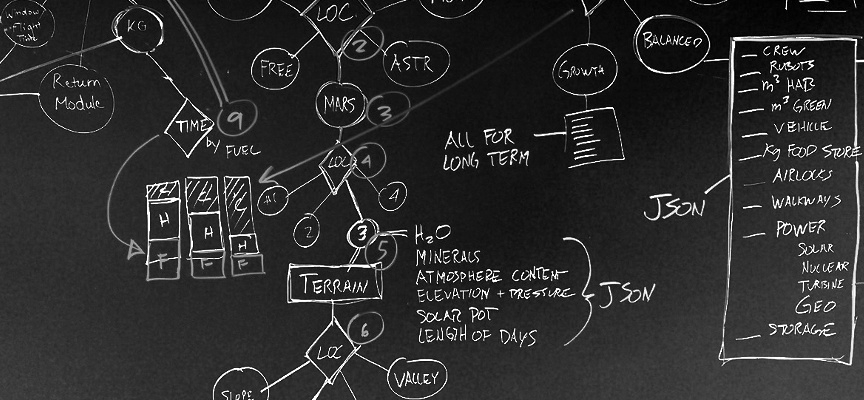 KG
Return
Module
TIME
by
FUEL
9
H
H
H
F
F
F
LOC.
2
FREE
ASTR
MARS
3
LOC
4
2
4
3
5
H2O
MINERALS
ATMOSPHERE CONTENT
ELEVATION + PRESSURE
SOLAR POT
LENGTH OF DAYS
JSON
TERRAIN
LOC
6
SLOPE
VALLEY
GROWTH
ALL FOR
LONG TERM
BALANCED
JSON
CREW
ROBOTS
m³ HAB
m³ GREEN
VEHICLE
Kg FOOD STORE
AIRLOCKS
WALKWAYS
POWER
SOLAR
NUCLEAR
TURBINE
GEO
STORAGE